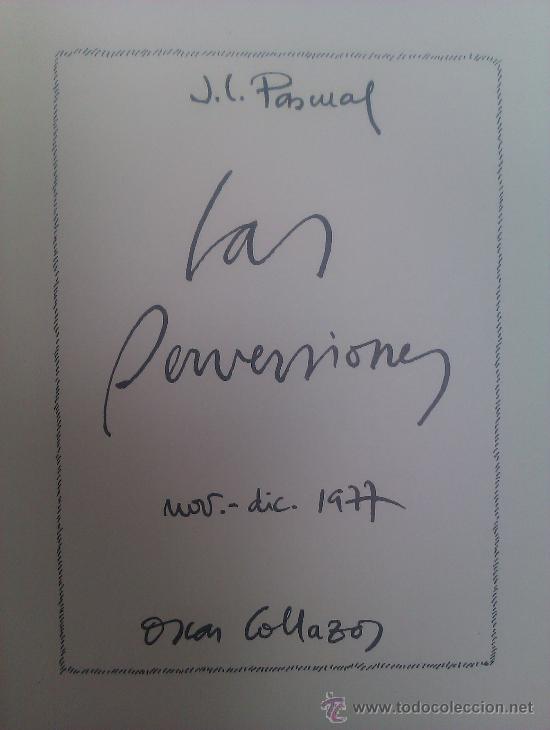 J.L. Pascual
Las
Perversiones
nov.-dic. 1977
Oscar Collazos
www.todocoleccion.net